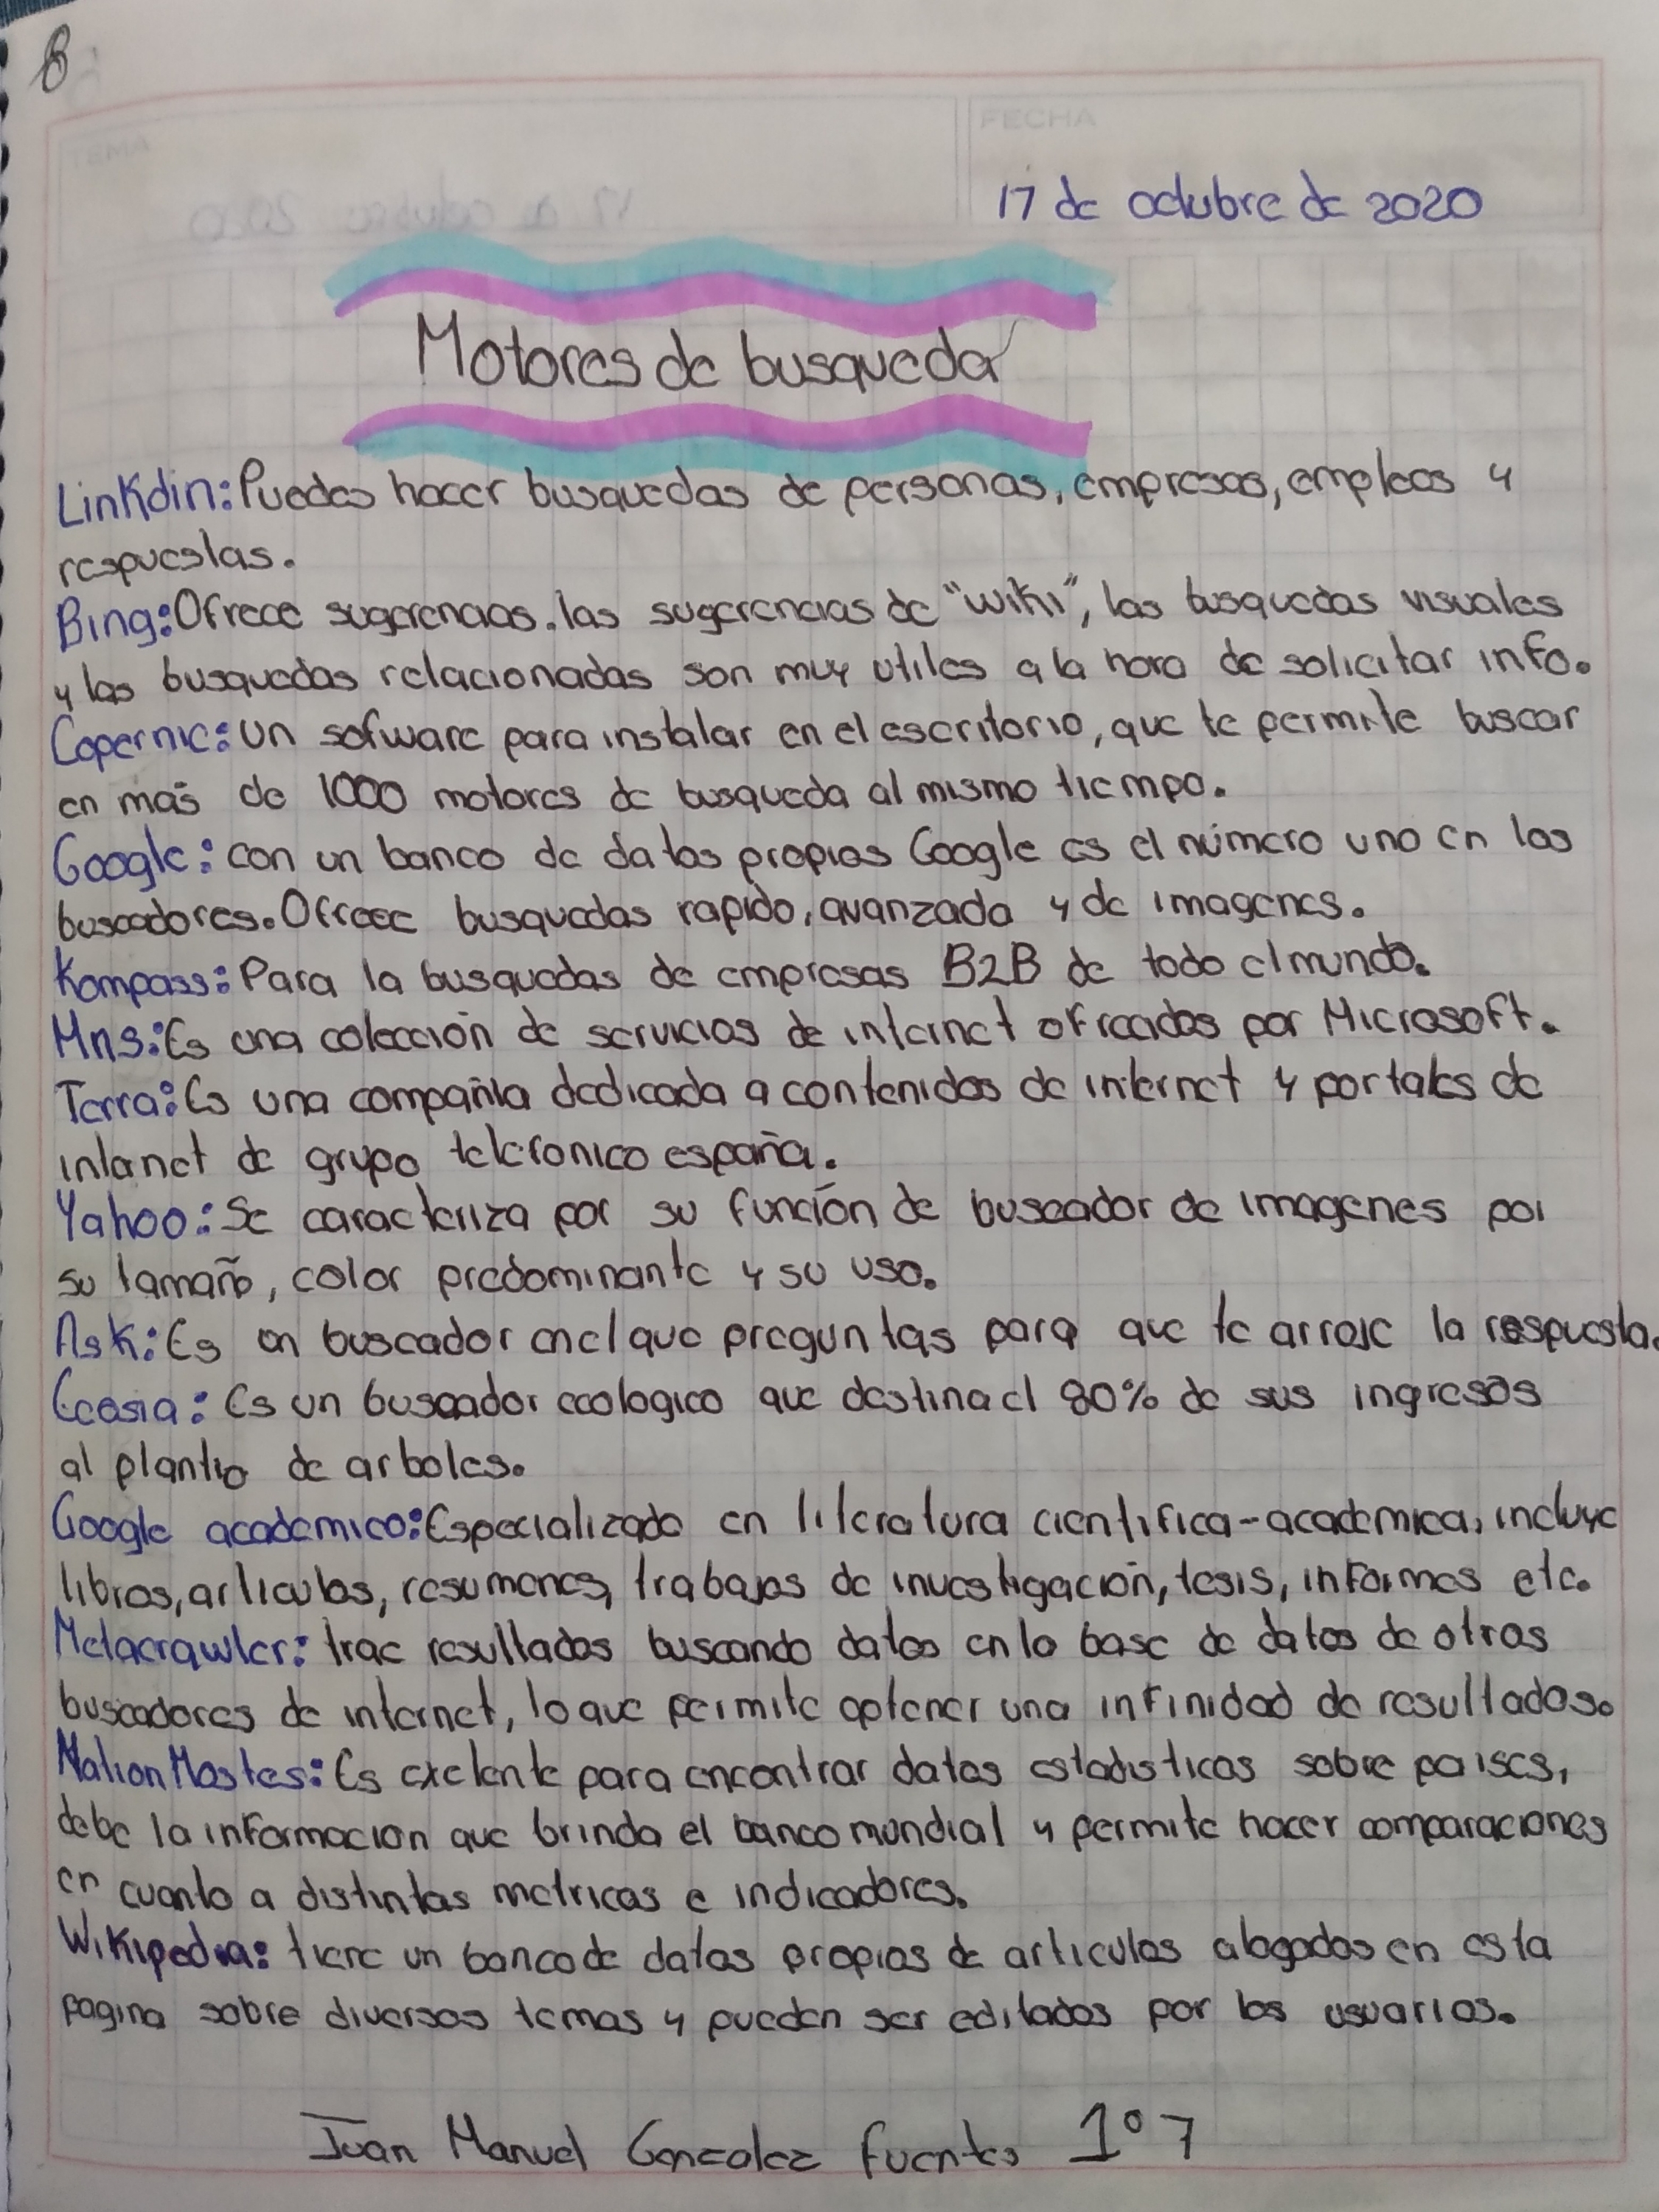 8
TEMA
FECHA
17 de octubre de 2020
Motores de busqueda
Linkdin: Puedes hacer busquedas de personas, empresas, empleos y
respuestas.
Bing: Ofrece sugerencias. las sugerencias de "wiki", las busquedas visuales
y las busquedas relacionadas son muy utiles a la hora de solicitar info.
Copernic: un sofware para instalar en el escritorio, que te permite buscar
en más de 1000 motores de busqueda al mismo tiempo.
Google: con un banco de datos propios Google es el número uno en los
buscadores. Ofrece busquedas rapido, avanzada y de imagenes.
Kompass: Para la busquedas de empresas B2B de todo el mundo.
Mns: Es una colección de servicios de internet ofrecidos por Microsoft.
Terra: Es una compañia dedicada a contenidos de internet y portales de
internet de grupo telefonico españa.
Yahoo: Se caracteriza por su función de buscador de imagenes por
su tamaño, color predominante y su uso.
Ask: Es un buscador en el que preguntas para que te arroje la respuesta.
Ecosia: Es un buscador ecologico que destina el 80% de sus ingresos
al plantio de arboles.
Google academico: Especializado en literatura cientifica-academica, incluye
libros, articulos, resumenes, trabajos de investigación, tesis, informes etc.
Metacrawler: trae resultados buscando datos en la base de datos de otros
buscadores de internet, lo que permite optener una infinidad de resultados.
Nation Mastes: Es exelente para encontrar datos estadisticos sobre paises,
debe la informacion que brinda el banco mundial y permite hacer comparaciones
en cuanto a distintas metricas e indicadores.
Wikipedia: tiene un banco de datos propios de articulos alogados en esta
pagina sobre diversos temas y pueden ser editados por los usuarios.
Juan Manuel Gonzalez Fuentes 1º7